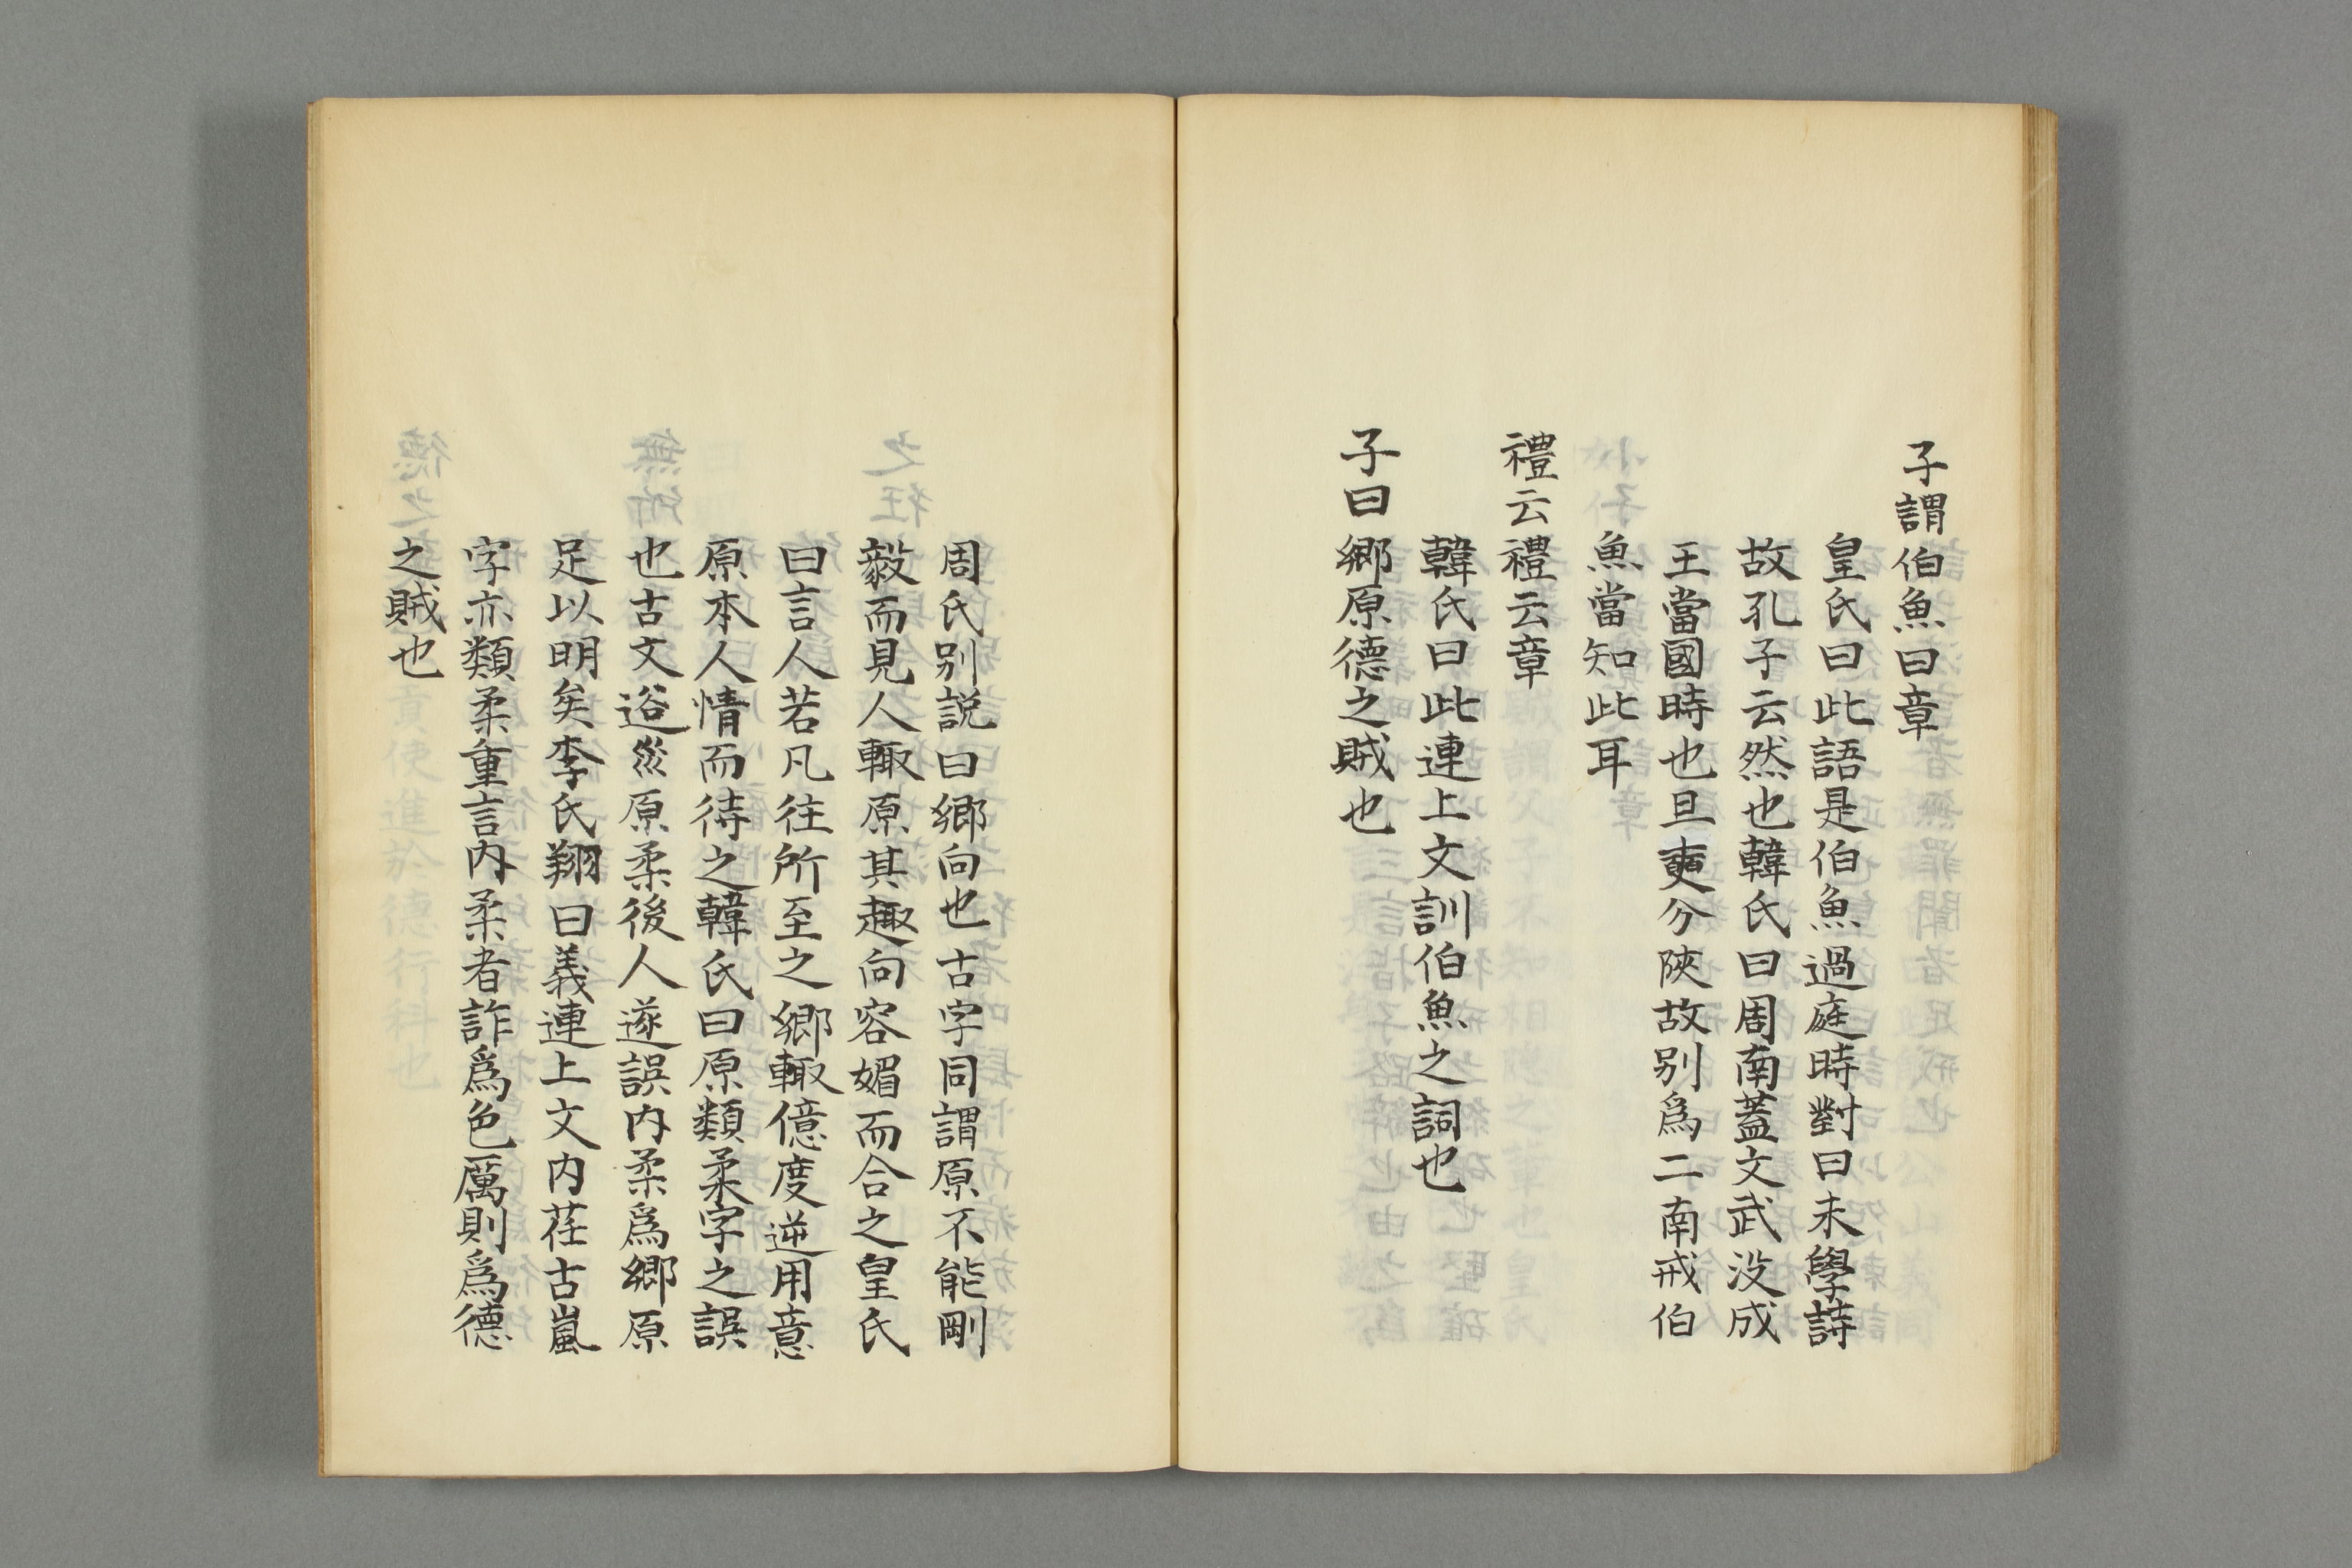 子謂伯魚曰章
皇氏曰此語是伯魚過庭時對曰未學詩
故孔子云然也韓氏曰周南蓋文武没成
王當國時也旦奭分陝故别爲二南戒伯
魚當知此耳
禮云禮云章
韓氏曰此連上文訓伯魚之詞也
子曰鄉原德之賊也
周氏别説曰鄉向也古字同謂原不能剛
毅而見人輙原其趣向容媚而合之皇氏
曰言人若凡往所至之鄉輙億度逆用意
原本人情而待之韓氏曰原類柔字之誤
也古文逧𡿺原柔後人遂誤内柔爲鄉原
足以明矣李氏翔曰義連上文内荏古嵐
字亦類柔重言内柔者詐爲色厲則爲德
之賊也